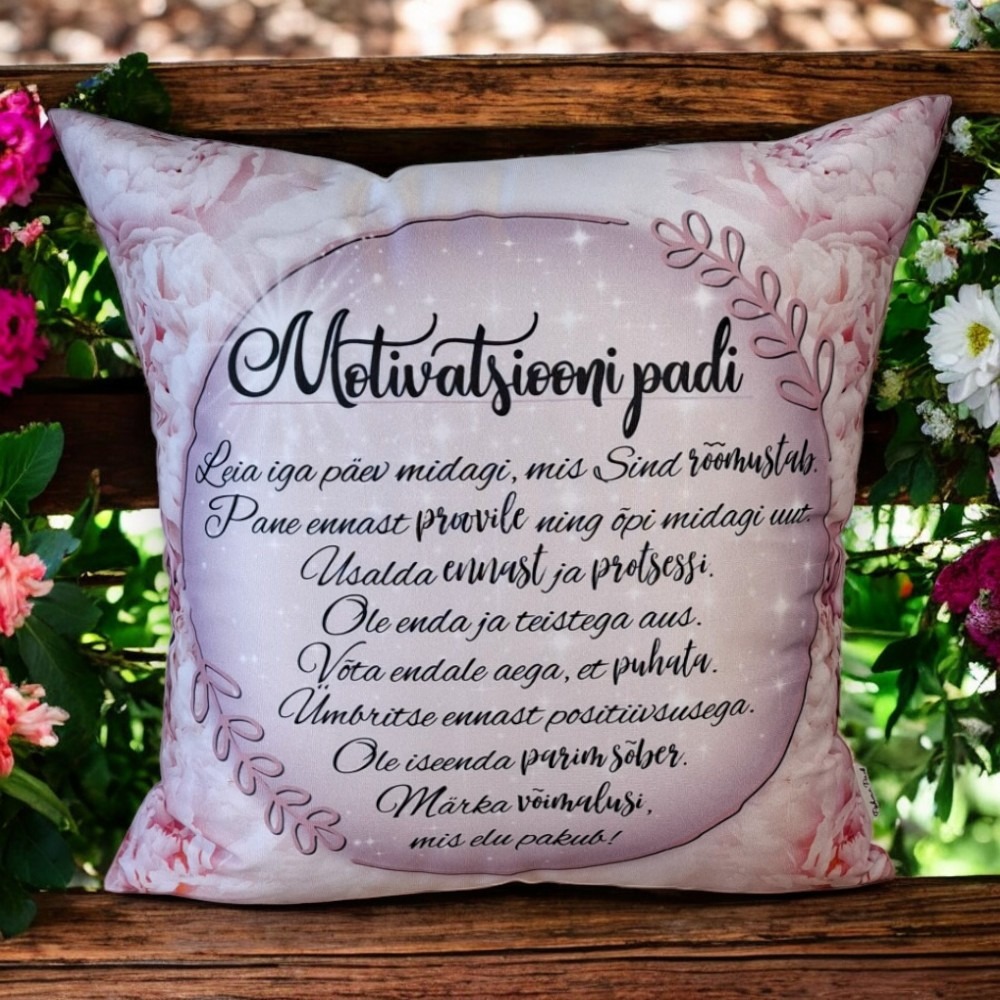 Motivatsiooni padi
Leia iga päev midagi, mis Sind rõõmustab.
Pane ennast proovile ning õpi midagi uut.
Usalda ennast ja protsessi.
Ole enda ja teistega aus.
Võta endale aega, et puhata.
Ümbritse ennast positiivsusega.
Ole iseenda parim sõber.
Märka võimalusi,
mis elu pakub!